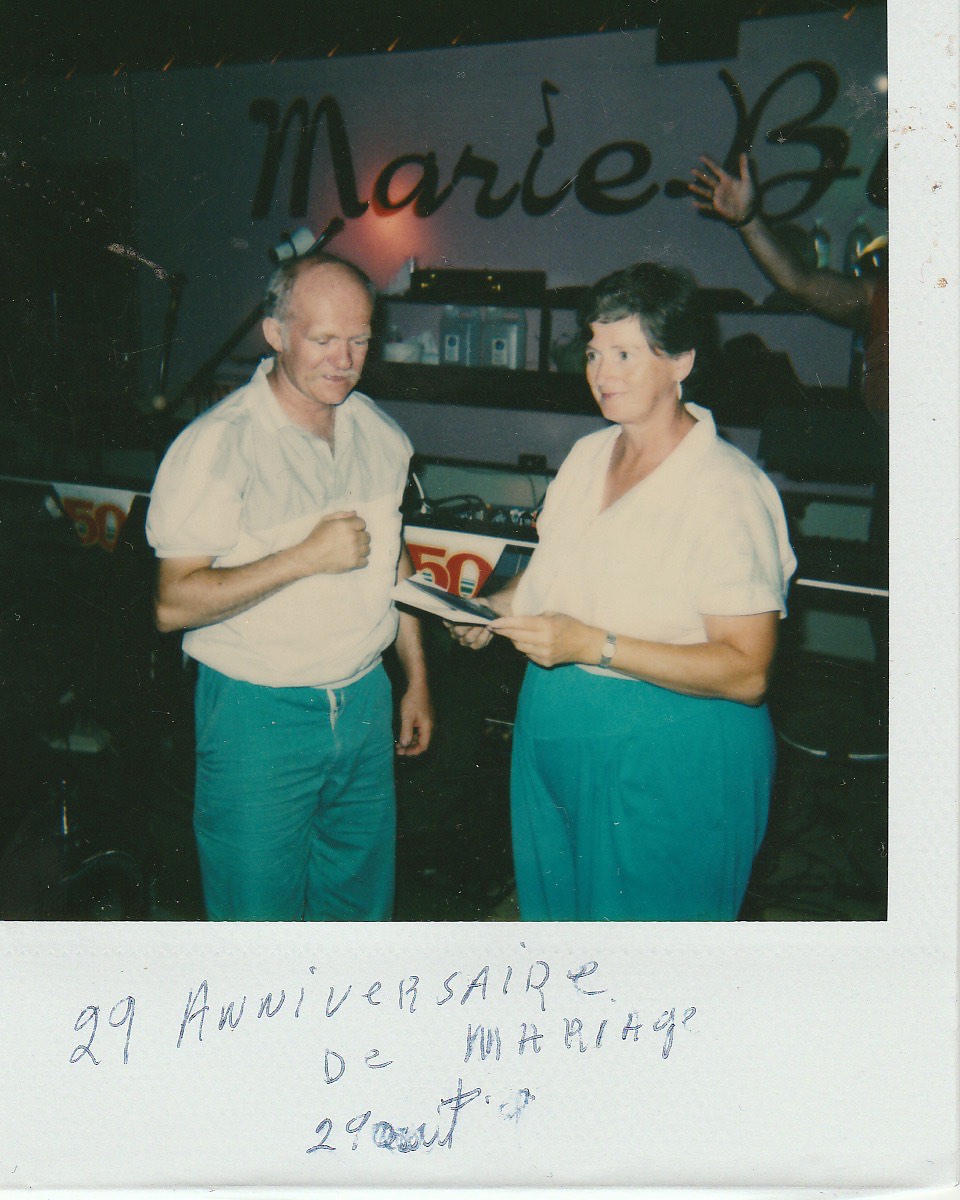 Marie-B
50
50
29 ANNIVERSAIRE
De MARIAge
29 aout